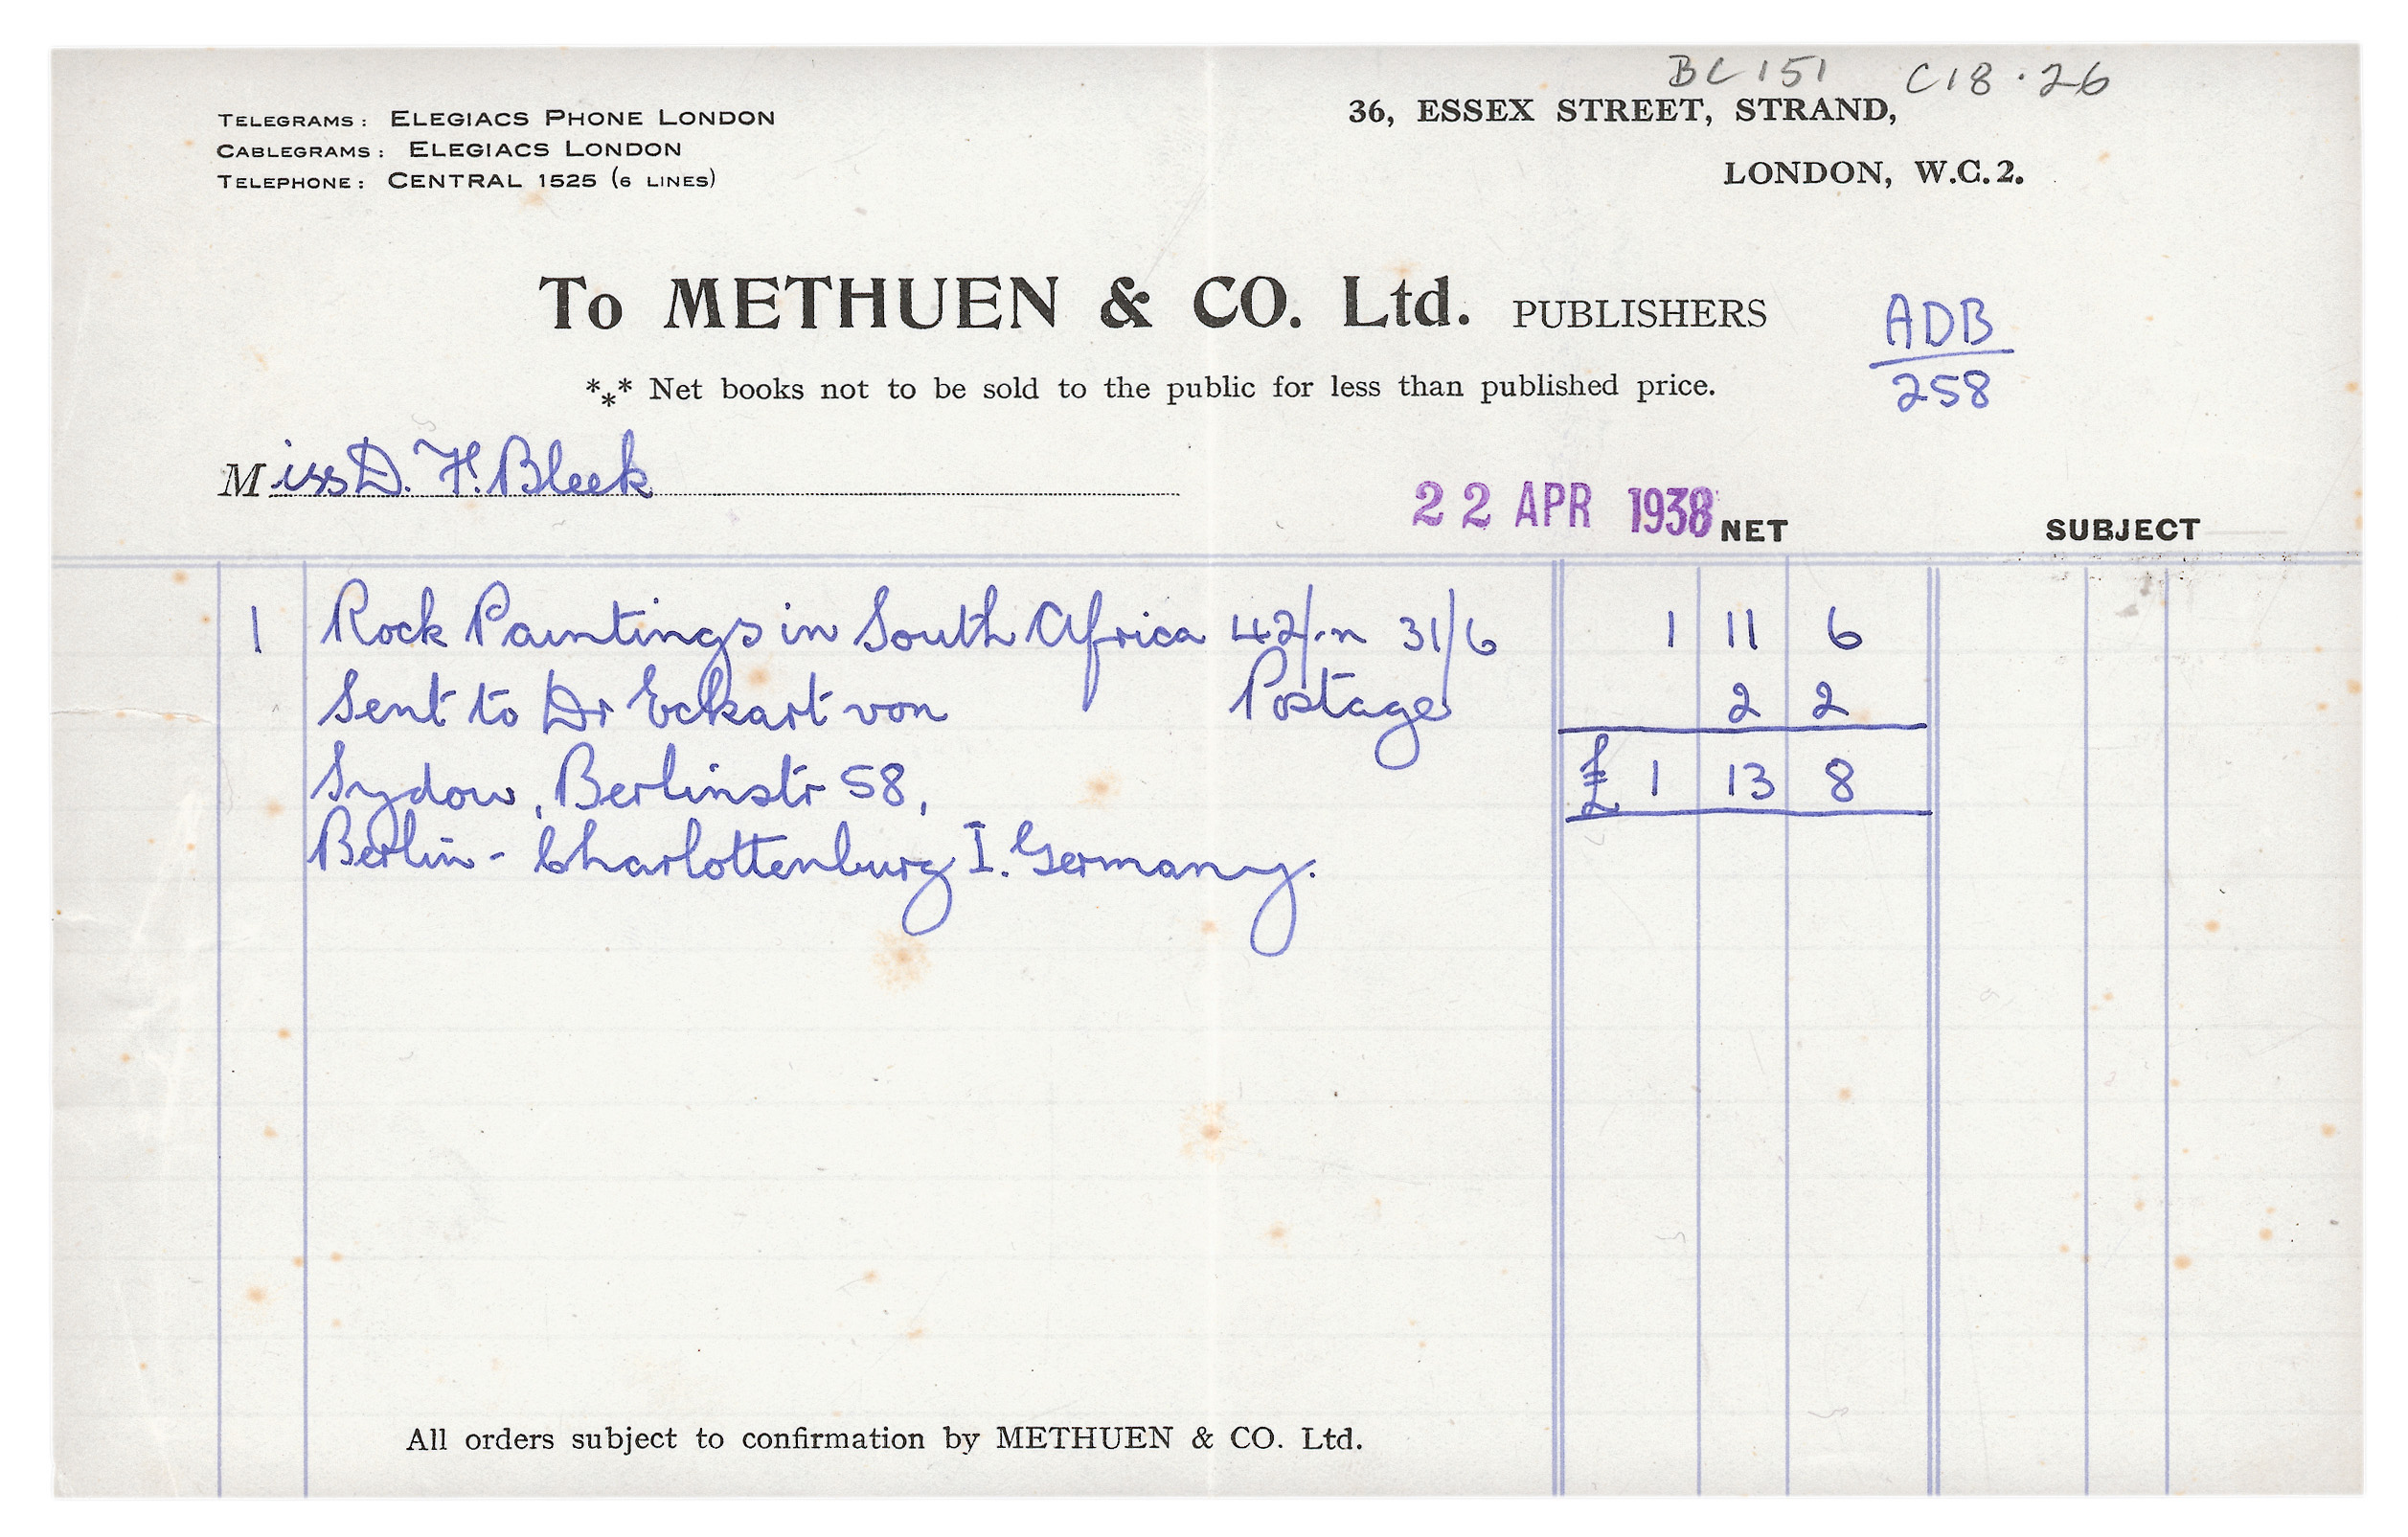 BC 151 C18.26
TELEGRAMS: ELEGIACS PHONE LONDON
CABLEGRAMS: ELEGIACS LONDON
TELEPHONE: CENTRAL 1525 (6 LINES)
36, ESSEX STREET, STRAND,
LONDON, W.C.2.
To METHUEN & CO. Ltd. PUBLISHERS
ADB
258
*** Net books not to be sold to the public for less than published price.
Miss D. F. Bleek
22 APR 1938
NET SUBJECT
1 Rock Paintings in South Africa 42/-n 31/6 1 11 6
Sent to Dr Eckart von Postage 2 2
Sydow, Berlinstr 58, £ 1 13 8
Berlin - Charlottenburg I. Germany.
All orders subject to confirmation by METHUEN & CO. Ltd.